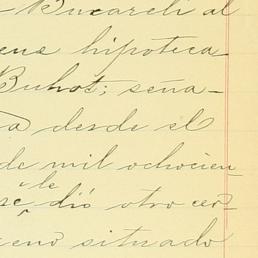 - Bucareli al
ene hipoteca
Buhot; seña-
a desde el
de mil ochocien
se le dió otro cer-
eno situado